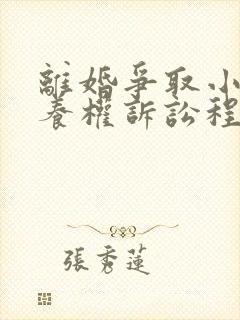 離婚爭取小
養權訴訟程
張秀蓮